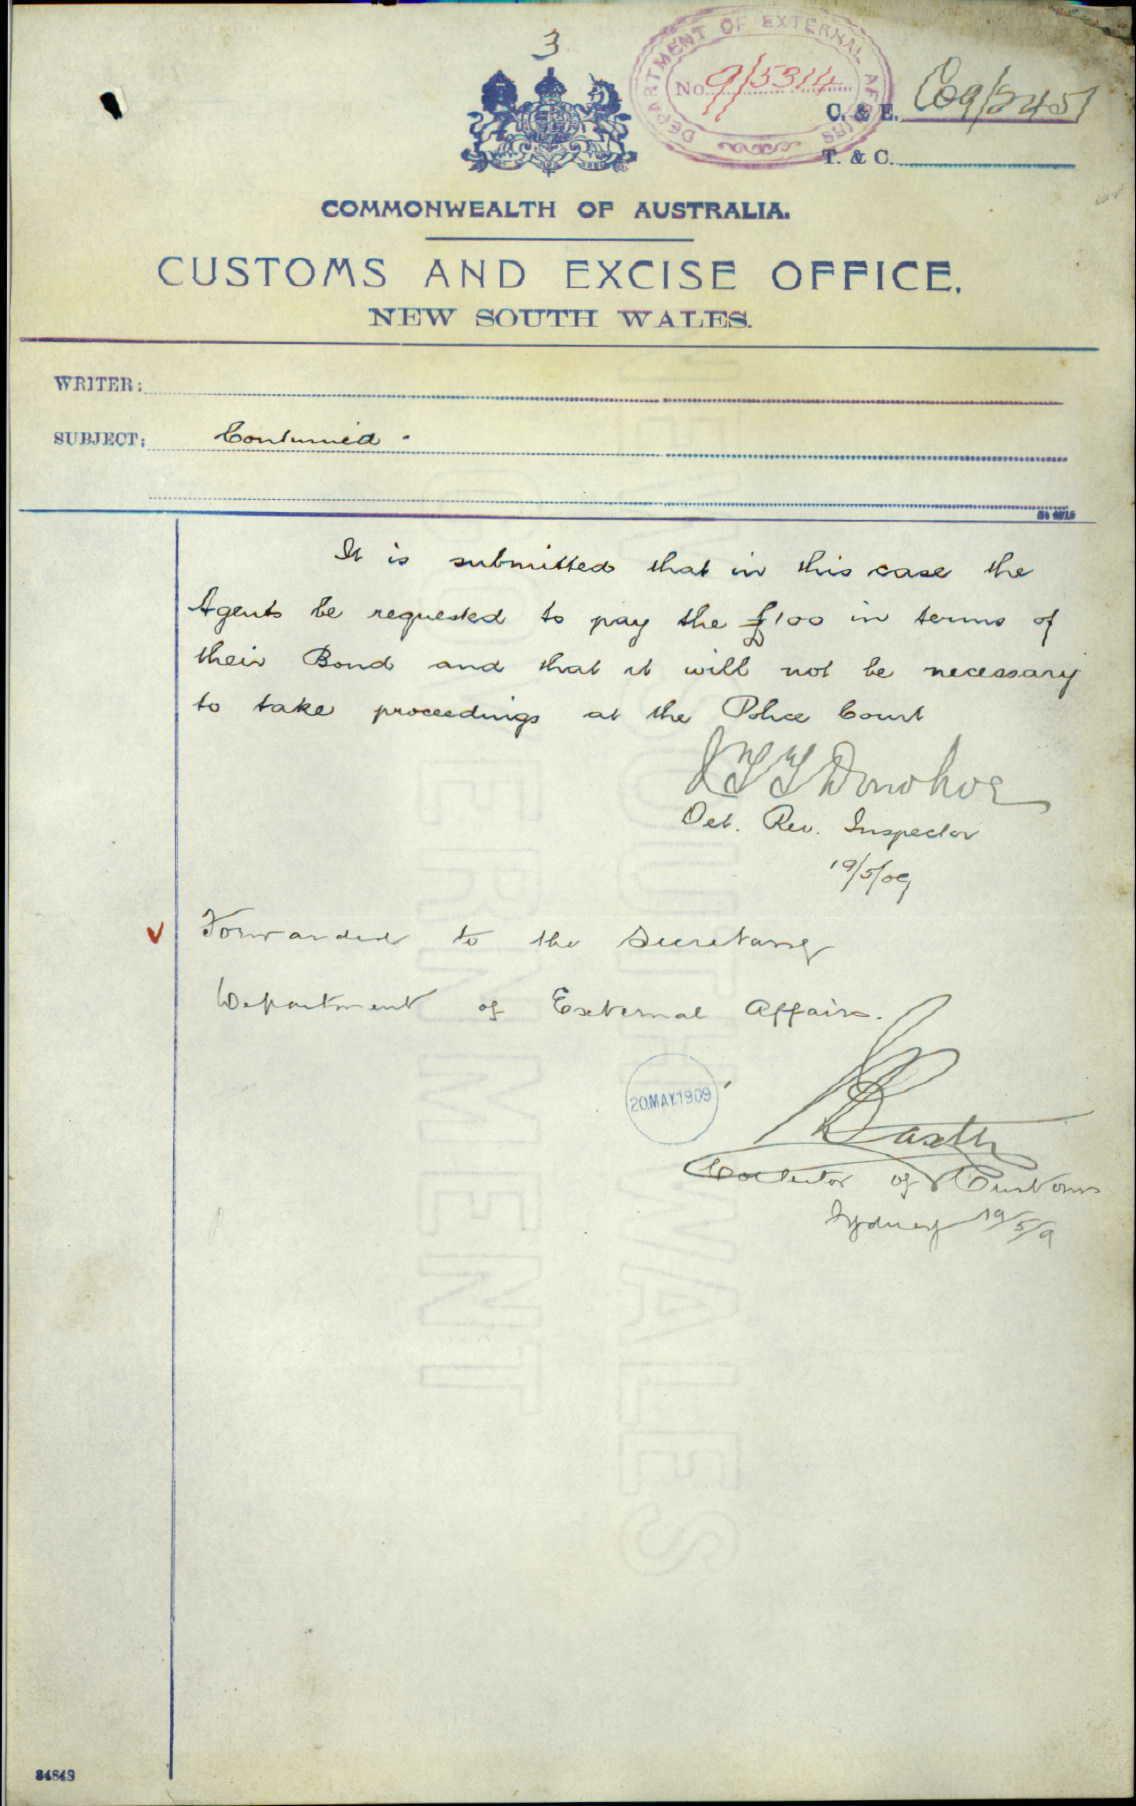 3
DEPARTMENT OF EXTERNAL AFFAIRS
No. 9/5314
C. & E. C09/2451
T. & C.
COMMONWEALTH OF AUSTRALIA.
CUSTOMS AND EXCISE OFFICE.
NEW SOUTH WALES.
WRITER:
SUBJECT: Continued.
It is submitted that in this case the
Agents be requested to pay the £100 in terms of
their Bond and that it will not be necessary
to take proceedings at the Police Court
J T T Donohoe
Det. Rev. Inspector
19/5/09
v Forwarded to the Secretary
Department of External Affairs.
20.MAY.1909
Baxter
Collector of Customs
Sydney 19/5/9
NEW SOUTH WALES
GOVERNMENT
84849